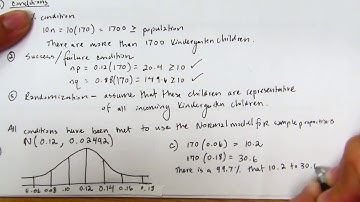 ① Conditions
% condition
10n = 10(170) = 1700 ≥ population
There are more than 1700 Kindergarten children.
② Success/failure condition
np = 0.12(170) = 20.4 ≥ 10 ✓
nq = 0.88(170) = 149.6 ≥ 10 ✓
③ Randomization - assume that these children are representative
of all incoming Kindergarten children.
All conditions have been met to use the Normal model for sample proportions
N(0.12, 0.02492)
0.06 0.08 0.10 0.12 0.14 0.16 0.18
c) 170(0.06) = 10.2
170(0.18) = 30.6
There is a 99.7% that 10.2 to 30.6